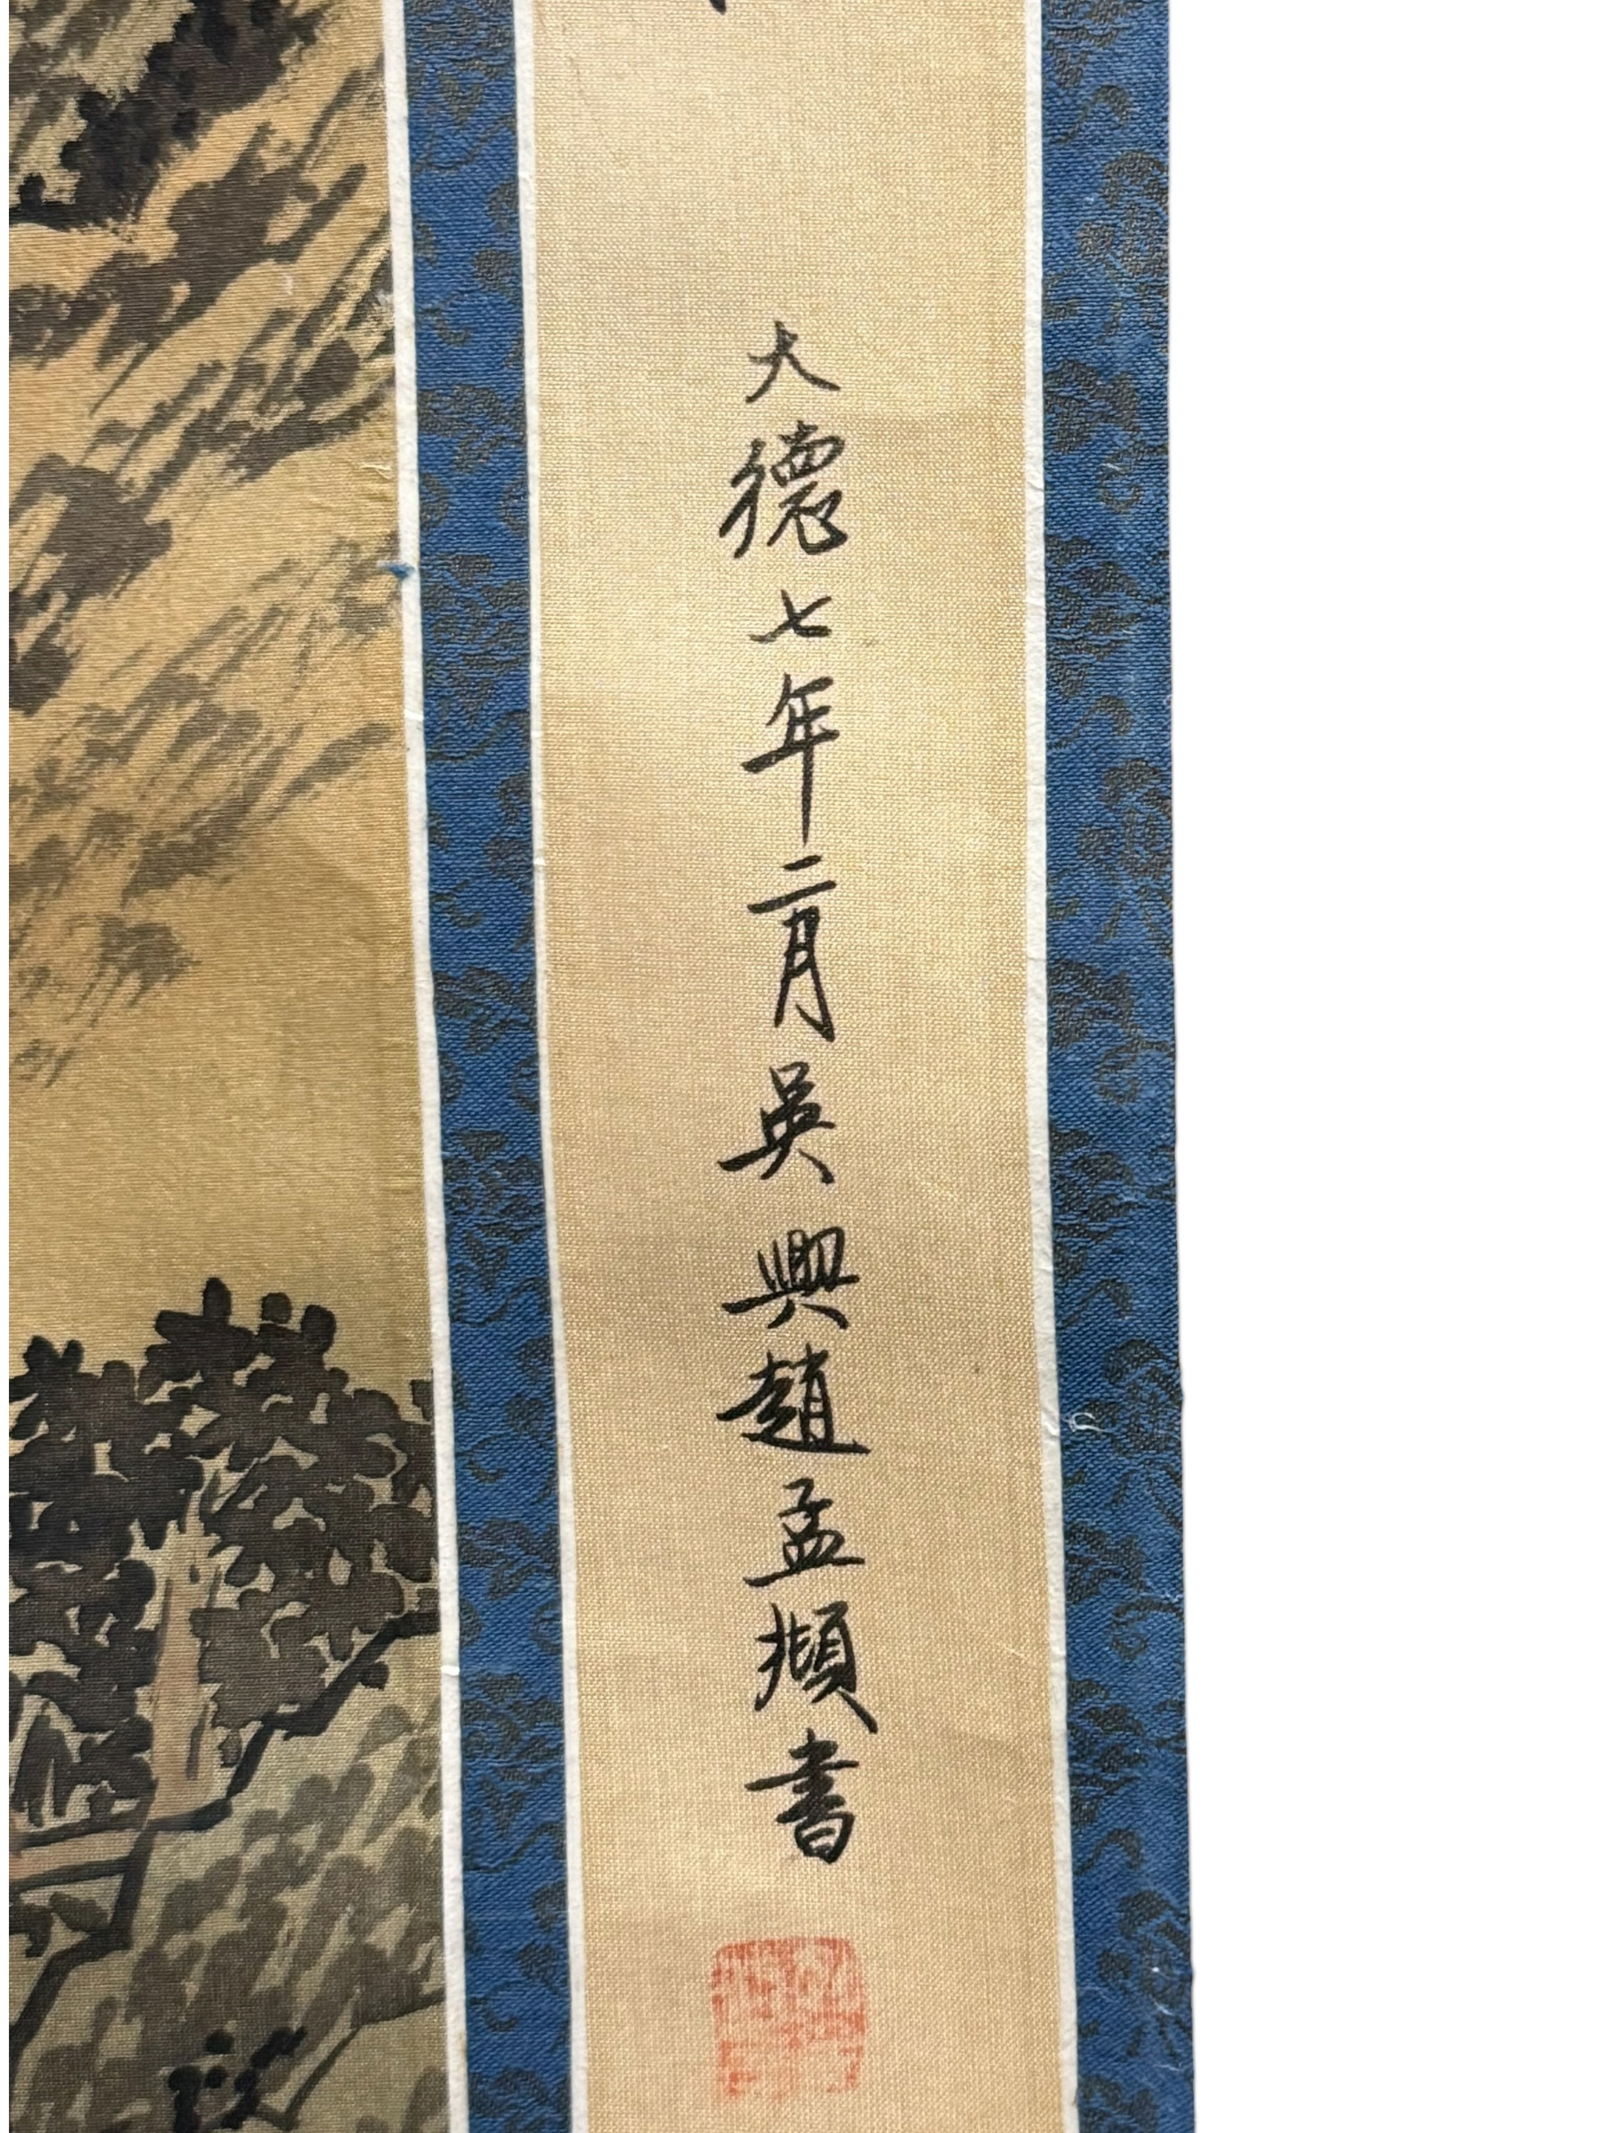 大德七年二月吳興趙孟頫書